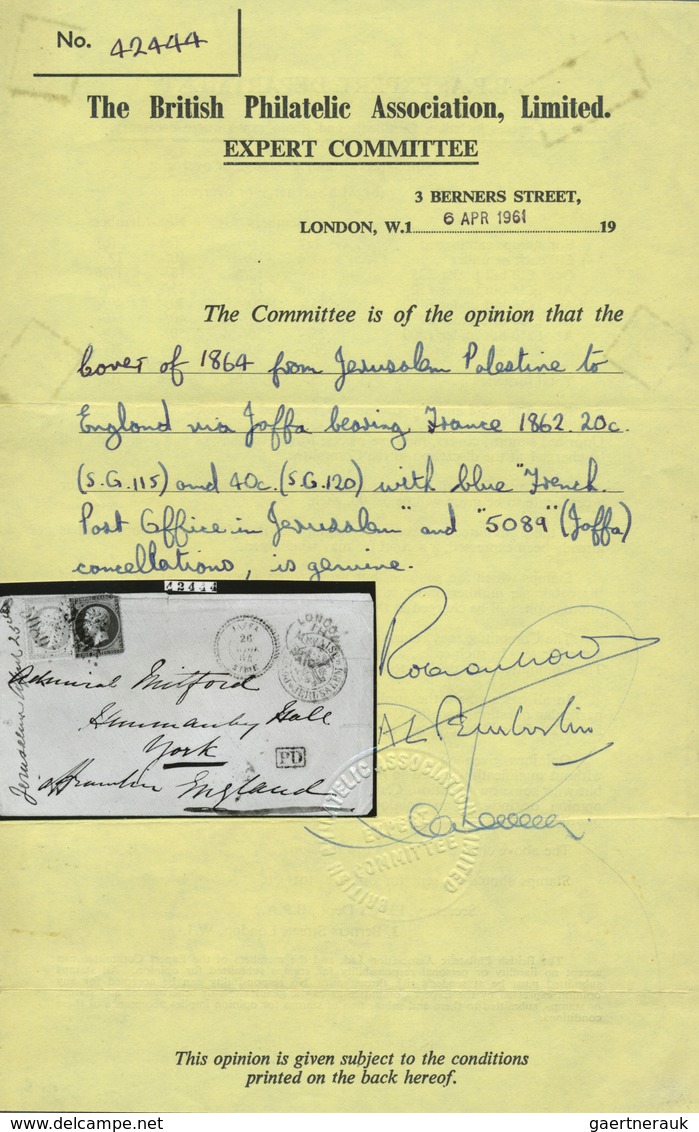 No. 42444
The British Philatelic Association, Limited.
EXPERT COMMITTEE
3 BERNERS STREET,
LONDON, W.1 6 APR 1961 19
The Committee is of the opinion that the
Cover of 1864 from Jerusalem Palestine to
England via Jaffa bearing France 1862. 20c.
(S.G.115) and 40c. (S.G.120) with blue "French
Post Office in Jerusalem" and "5089" (Jaffa)
cancellations, is genuine.
42444
Admiral Mitford
Hunmanby Hall
York
PD
England
BRITISH PHILATELIC ASSOCIATION LIMITED
EXPERT
COMMITTEE
This opinion is given subject to the conditions
printed on the back hereof.
gaertnerauk